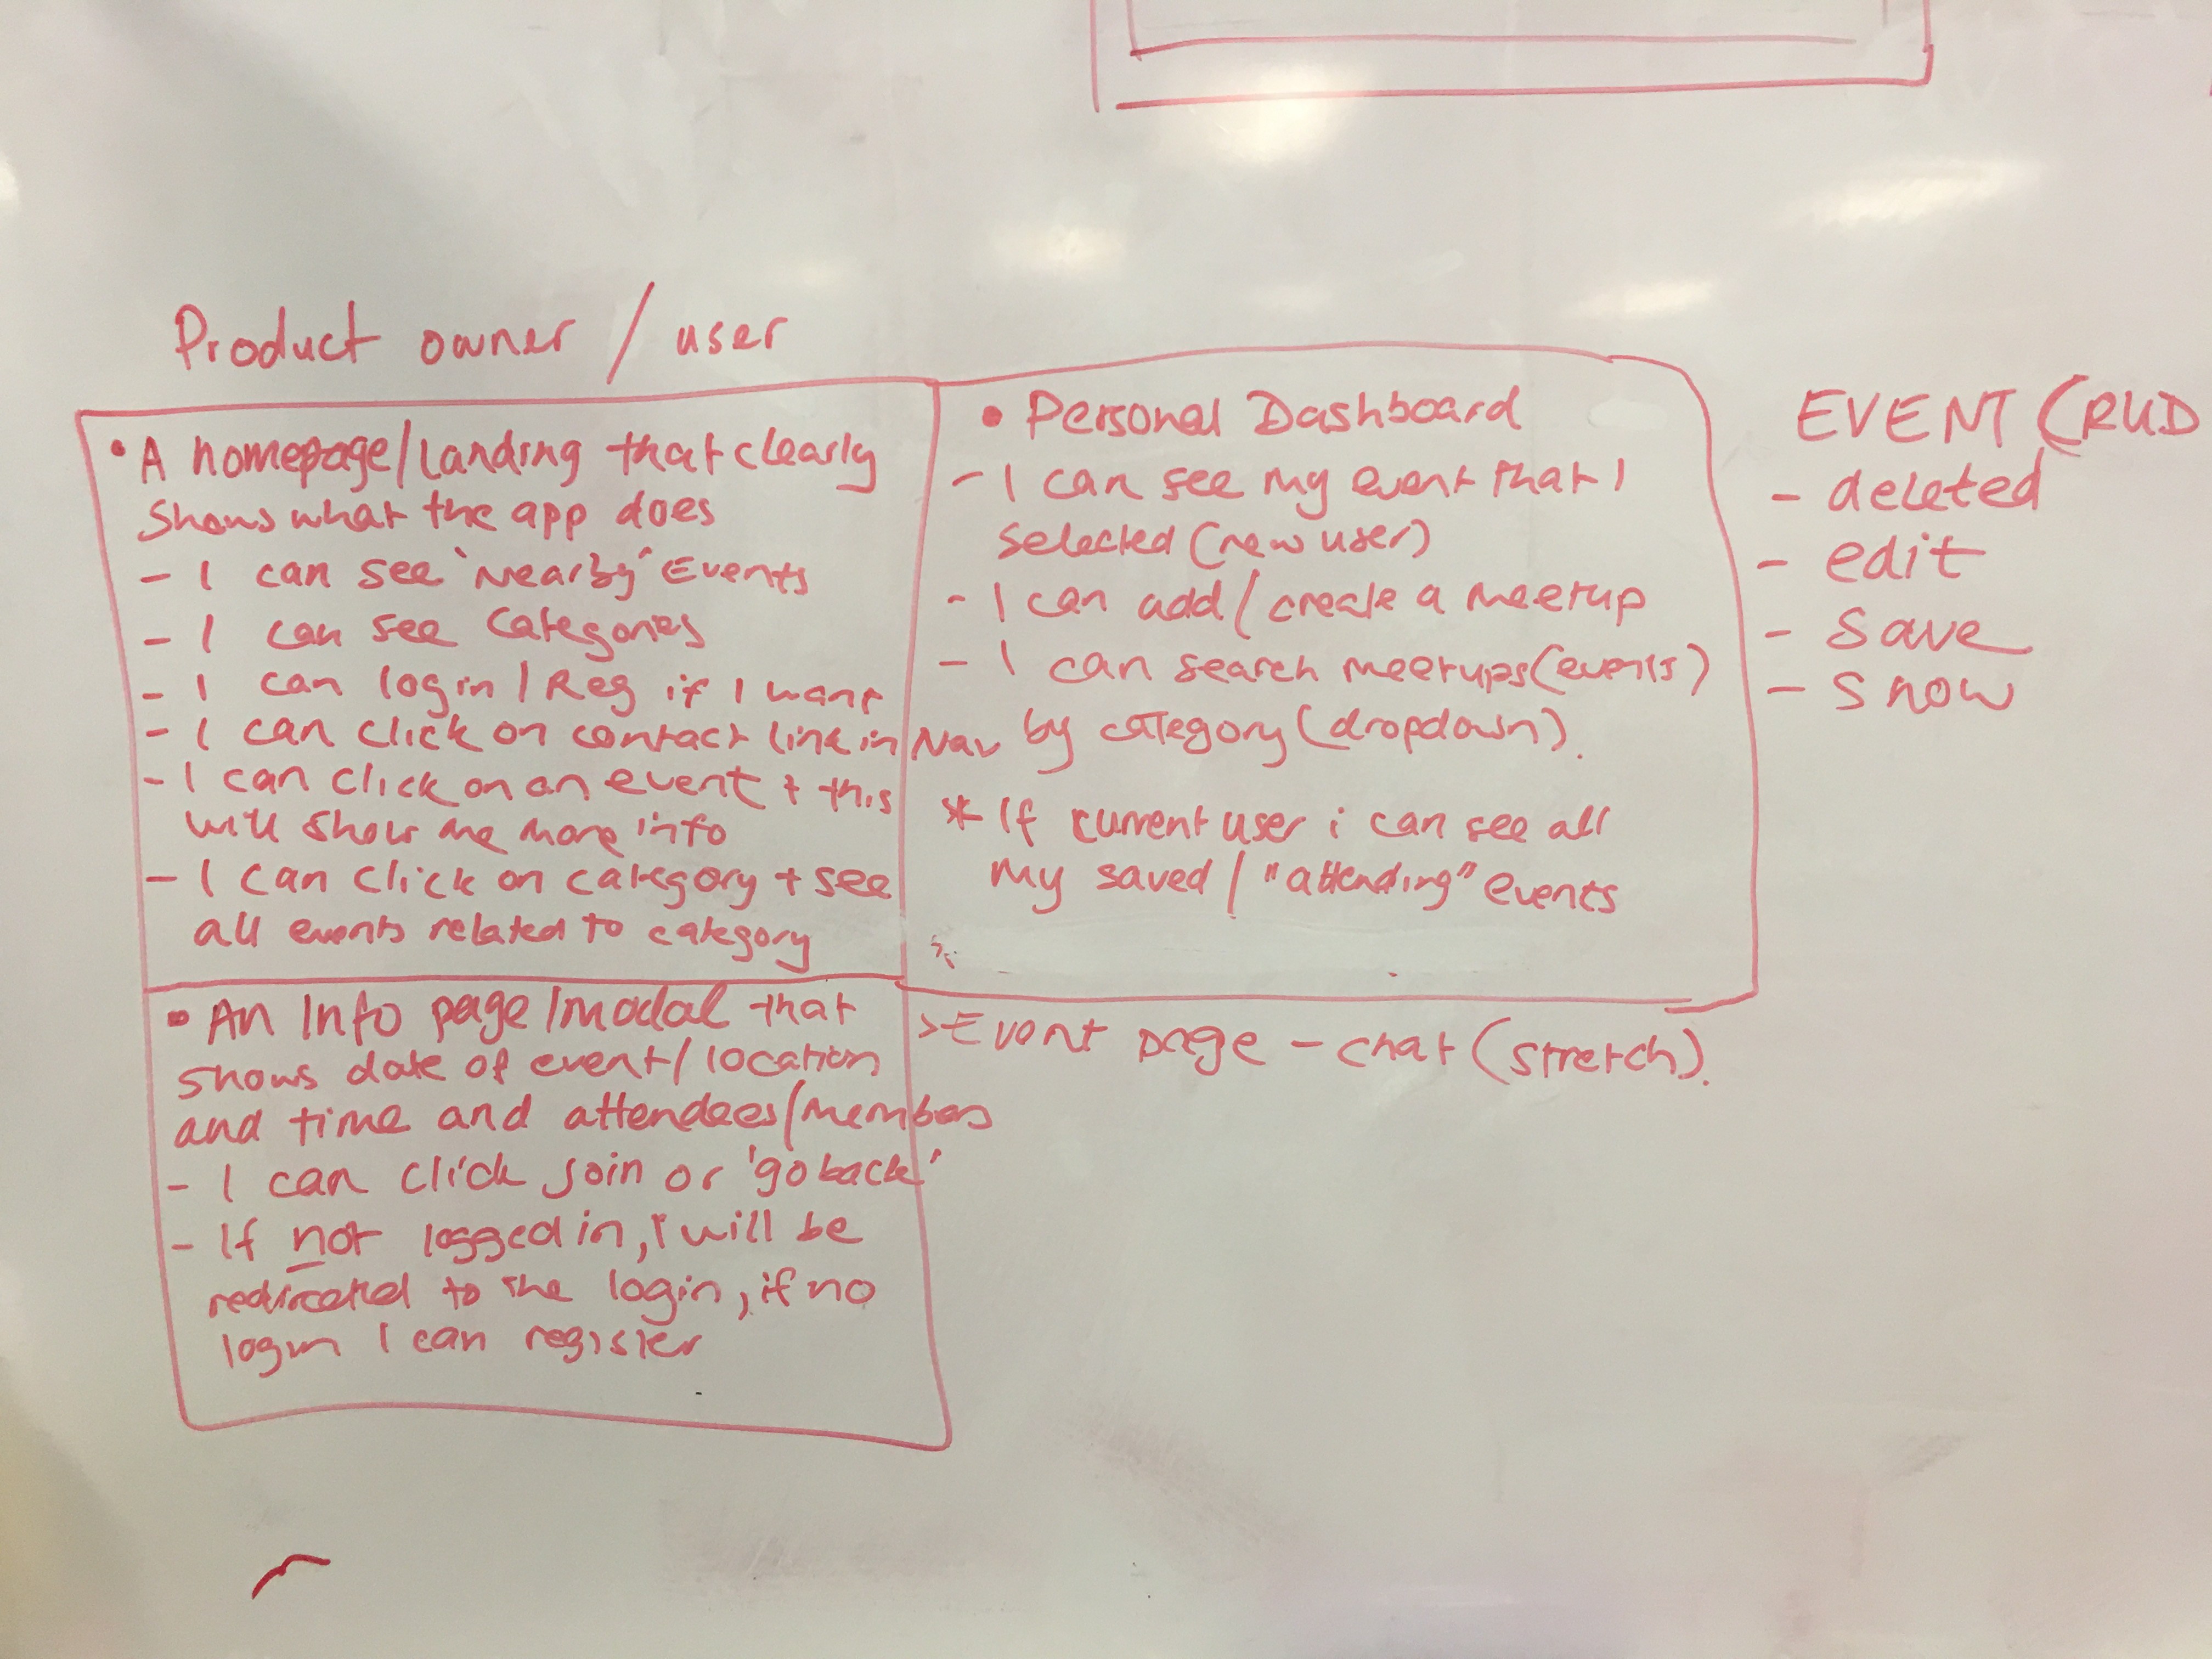 Product owner / user
• A homepage/Landing that clearly
shows what the app does
- I can see 'Nearby' Events
- I can see Categories
- I can login / Reg if I want
- I can click on contact link in Nav
- I can click on an event + this
will show me more info
- I can click on category + see
all events related to category
• An Info page/modal that
shows date of event/location
and time and attendees/members
- I can click join or 'go back'
- If not logged in, I will be
redirected to the login, if no
login I can register
• Personal Dashboard
- I can see my event that I
selected (new user)
- I can add/create a meetup
- I can search meetups(events)
by category (dropdown).
* If current user i can see all
my saved / "attending" events
>Event page - chat (stretch).
EVENT CRUD
- deleted
- edit
- save
- show